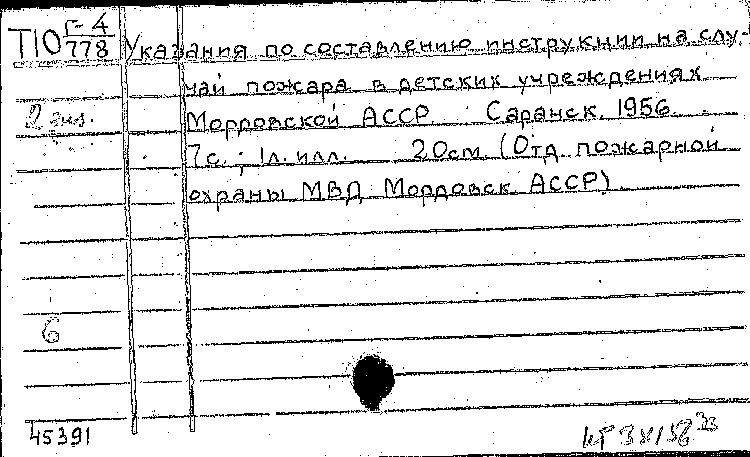 Т10 Г-4
778 Указания по составлению инструкции на слу-
чай пожара в детских учреждениях
2 экз. Мордовской АССР Саранск, 1956.
7 с.; 1л. илл. 20см. (Отд пожарной
охраны МВД Мордовск АССР)
6
45391